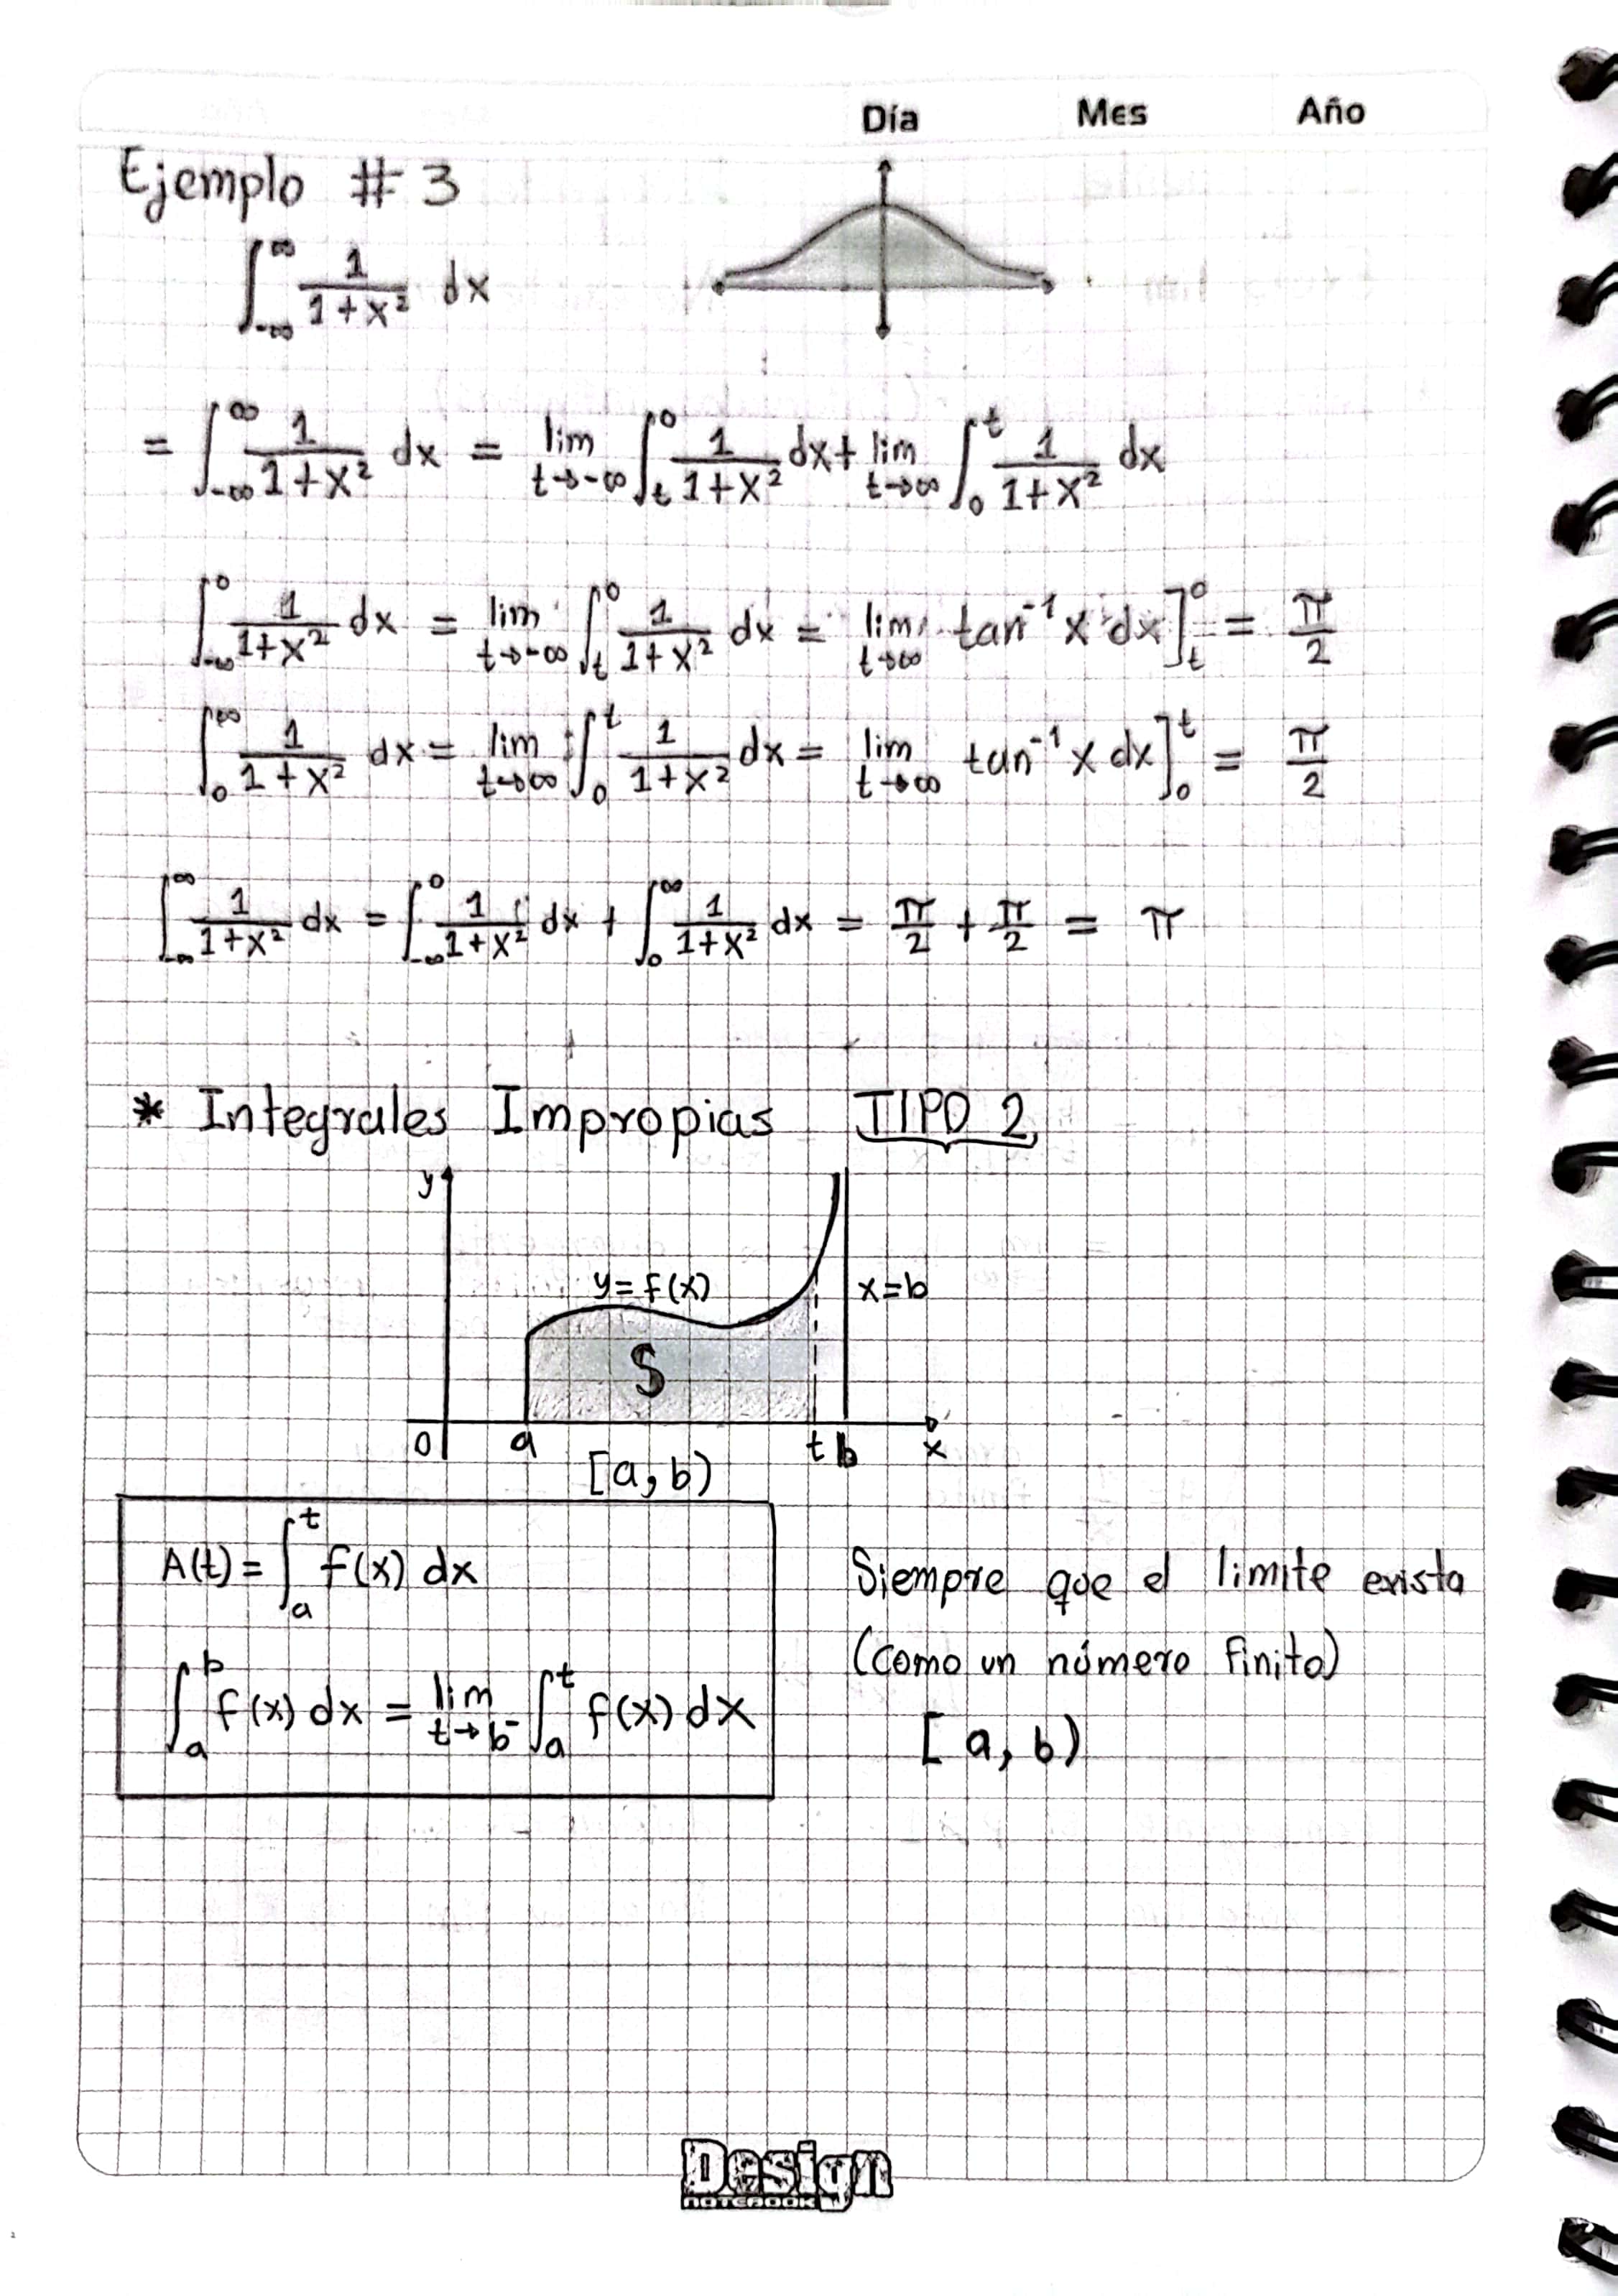 Día Mes Año
Ejemplo # 3
∫_{-∞}^{∞} 1/(1+x²) dx
= ∫_{-∞}^{∞} 1/(1+x²) dx = lim_{t→-∞} ∫_{t}^{0} 1/(1+x²) dx + lim_{t→∞} ∫_{0}^{t} 1/(1+x²) dx
∫_{-∞}^{0} 1/(1+x²) dx = lim_{t→-∞} ∫_{t}^{0} 1/(1+x²) dx = lim_{t→∞} tan⁻¹ x dx]_{t}^{0} = π/2
∫_{0}^{∞} 1/(1+x²) dx = lim_{t→∞} ∫_{0}^{t} 1/(1+x²) dx = lim_{t→∞} tan⁻¹ x dx]_{0}^{t} = π/2
∫_{-∞}^{∞} 1/(1+x²) dx = ∫_{-∞}^{0} 1/(1+x²) dx + ∫_{0}^{∞} 1/(1+x²) dx = π/2 + π/2 = π
* Integrales Impropias TIPO 2
y
y = f(x) x=b
S
0 a t b x
[a, b)
A(t) = ∫_{a}^{t} f(x) dx
∫_{a}^{b} f(x) dx = lim_{t→b⁻} ∫_{a}^{t} f(x) dx
Siempre que el limite exista
(como un número finito)
[a, b)
Design
NOTEBOOK